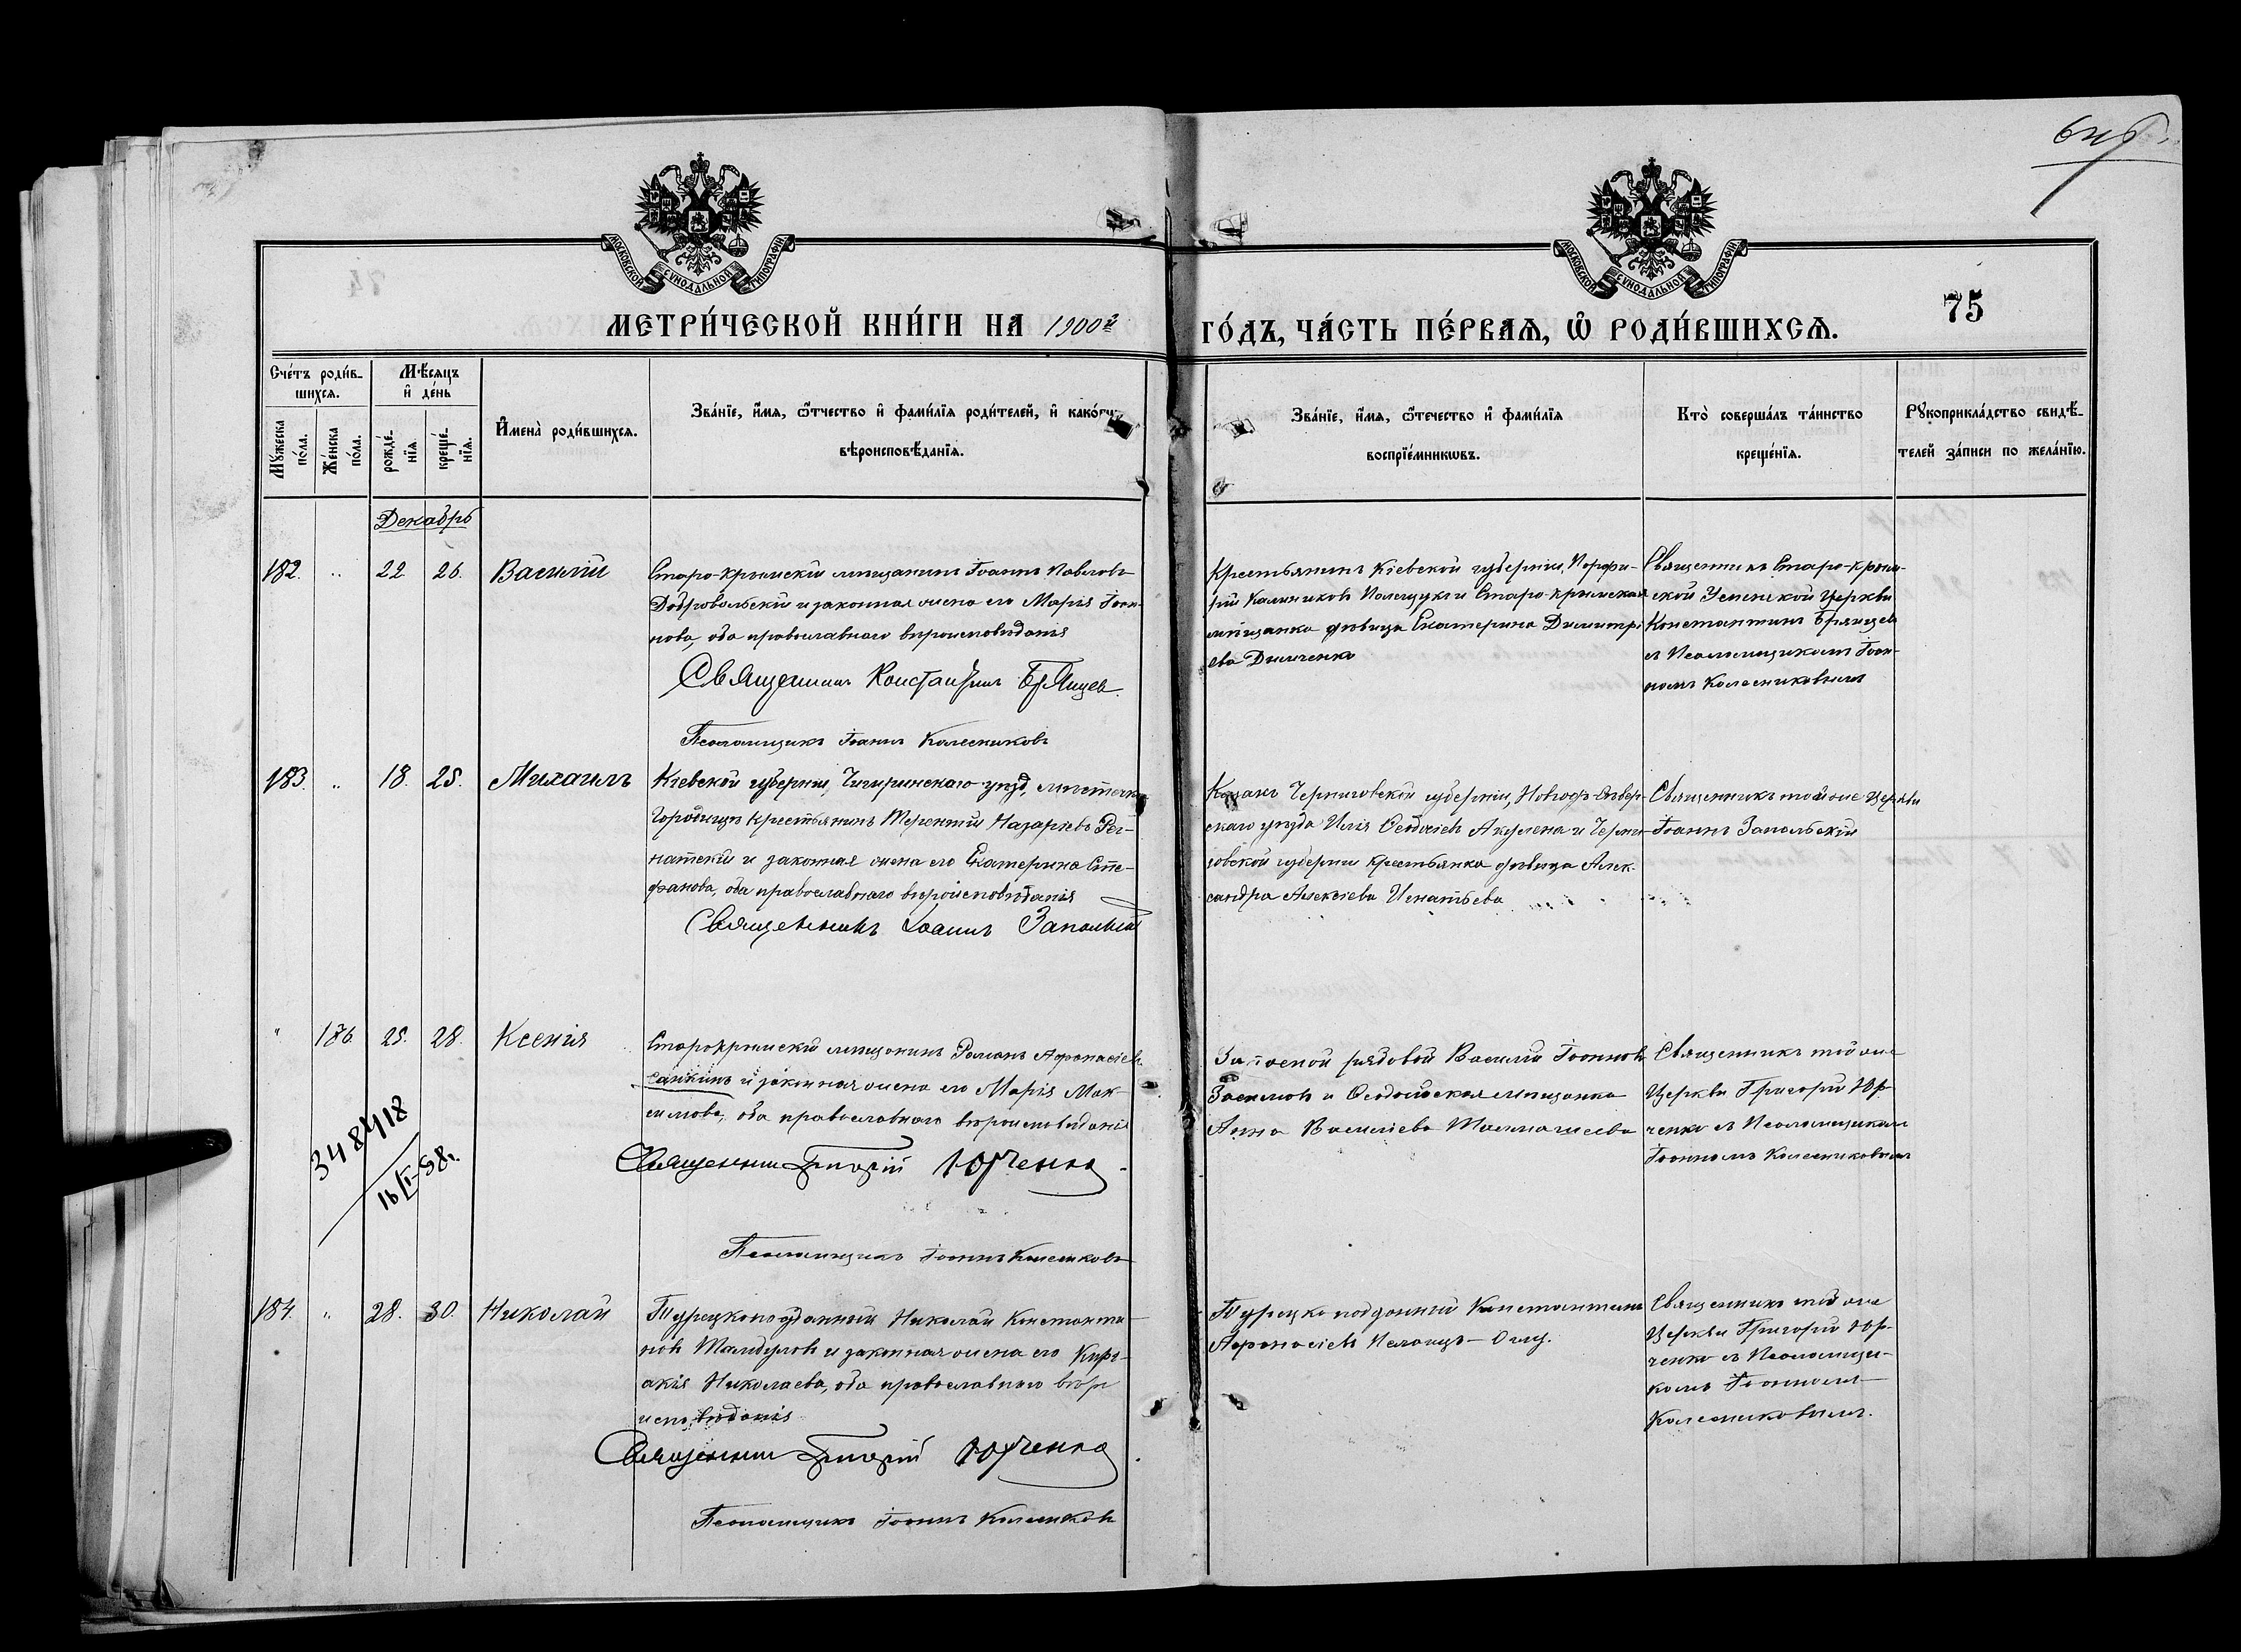 75
МОСКОВСКОЙ СѴНОДАЛЬНОЙ ТИПОГРАФІИ
МОСКОВСКОЙ СѴНОДАЛЬНОЙ ТИПОГРАФІИ
МЕТРИ́ЧЕСКОЙ КНИ́ГИ НА 1900й ГО́ДЪ, ЧА́СТЬ ПЕ́РВАѦ, Ѡ҆ РОДИ́ВШИХСѦ.
Сче́тъ роди́в-
шихсѧ.
Мꙋ́жеска по́ла.
Же́нска по́ла.
Мѣ́сяцъ
и҆ де́нь
рожде́-
нїѧ.
креще́-
нїѧ.
И҆мена̀ роди́вшихсѧ.
Зва́нїе, и҆́мѧ, ѻ҆́тчество и҆ фами́лїѧ роди́телей, и҆ како́гѡ
вѣроисповѣ́данїѧ.
Зва́нїе, и҆́мѧ, ѻ҆те́чество и҆ фами́лїѧ
воспрїе́мникѡвъ.
Кто̀ соверша́лъ та́инство
креще́нїѧ.
Рꙋкоприкла́дство свидѣ́-
телей за́писи по жела́нїю.
Декабрь
182. " 22. 26. Василій
Старо-Крымскій мѣщанинъ Іоаннъ Павловъ
Добровольскій и законная жена его Марія Іоан-
нова, оба православнаго вѣроисповѣданія
Священникъ Константинъ Брянцев.
Псаломщикъ Іоаннъ Колесниковъ
Крестьянинъ Кіевской губерніи, Порфи-
рій Калиниковъ и Старо-Крымская
мѣщанка дѣвица Екатерина Димитрі-
ева Димченко
Священникъ Старо-Крым-
ской Успенской церкви
Константинъ Брянцевъ
съ Псаломщикомъ Іоан-
номъ Колесниковымъ
183. " 18. 25. Михаилъ
Кіевской губерніи, Чигиринскаго уѣзд, мѣстечка
Городища крестьянинъ Терентій Назаріевъ
и законная жена его Екатерина Сте-
фанова, оба православнаго вѣроисповѣданія
Священникъ Іоаннъ Запольскій
Казакъ Черниговской губерніи, Новгор-Сѣвер-
скаго уѣзда Илія Ѳеодосіевъ и Черни-
говской губерніи крестьянка дѣвица Алек-
сандра Алексіева Игнатьева
Священникъ той же церкви
Іоаннъ Запольскій
" 176. 25. 28. Ксенія
Старокрымскій мѣщанинъ Романъ Афанасіевъ
Санжинъ и законная жена его Марія Мак-
симова, оба православнаго вѣроисповѣданія
Священник Григорій Юрченко.
Псаломщикъ Іоаннъ Колесниковъ
Запасной рядовой Василій Іоанновъ
Засимовъ и Ѳеодосійская мѣщанка
Анна Василіева
Священникъ той же
Церкви Григорій Юр-
ченко съ Псаломщикомъ
Іоанномъ Колесниковымъ
348418
16/I-98.
184. " 28. 30. Николай
Турецкоподданный Николай Константи-
новъ и законная жена его Кирі-
акія Николаева, оба православнаго вѣро
исповѣданія
Священник Григорій Юрченко
Псаломщикъ Іоаннъ Колесниковъ
Турецко подданный Константинъ
Афанасіевъ
Священникъ той же
Церкви Григорій Юр-
ченко съ Псаломщи-
комъ Іоанномъ
Колесниковымъ.